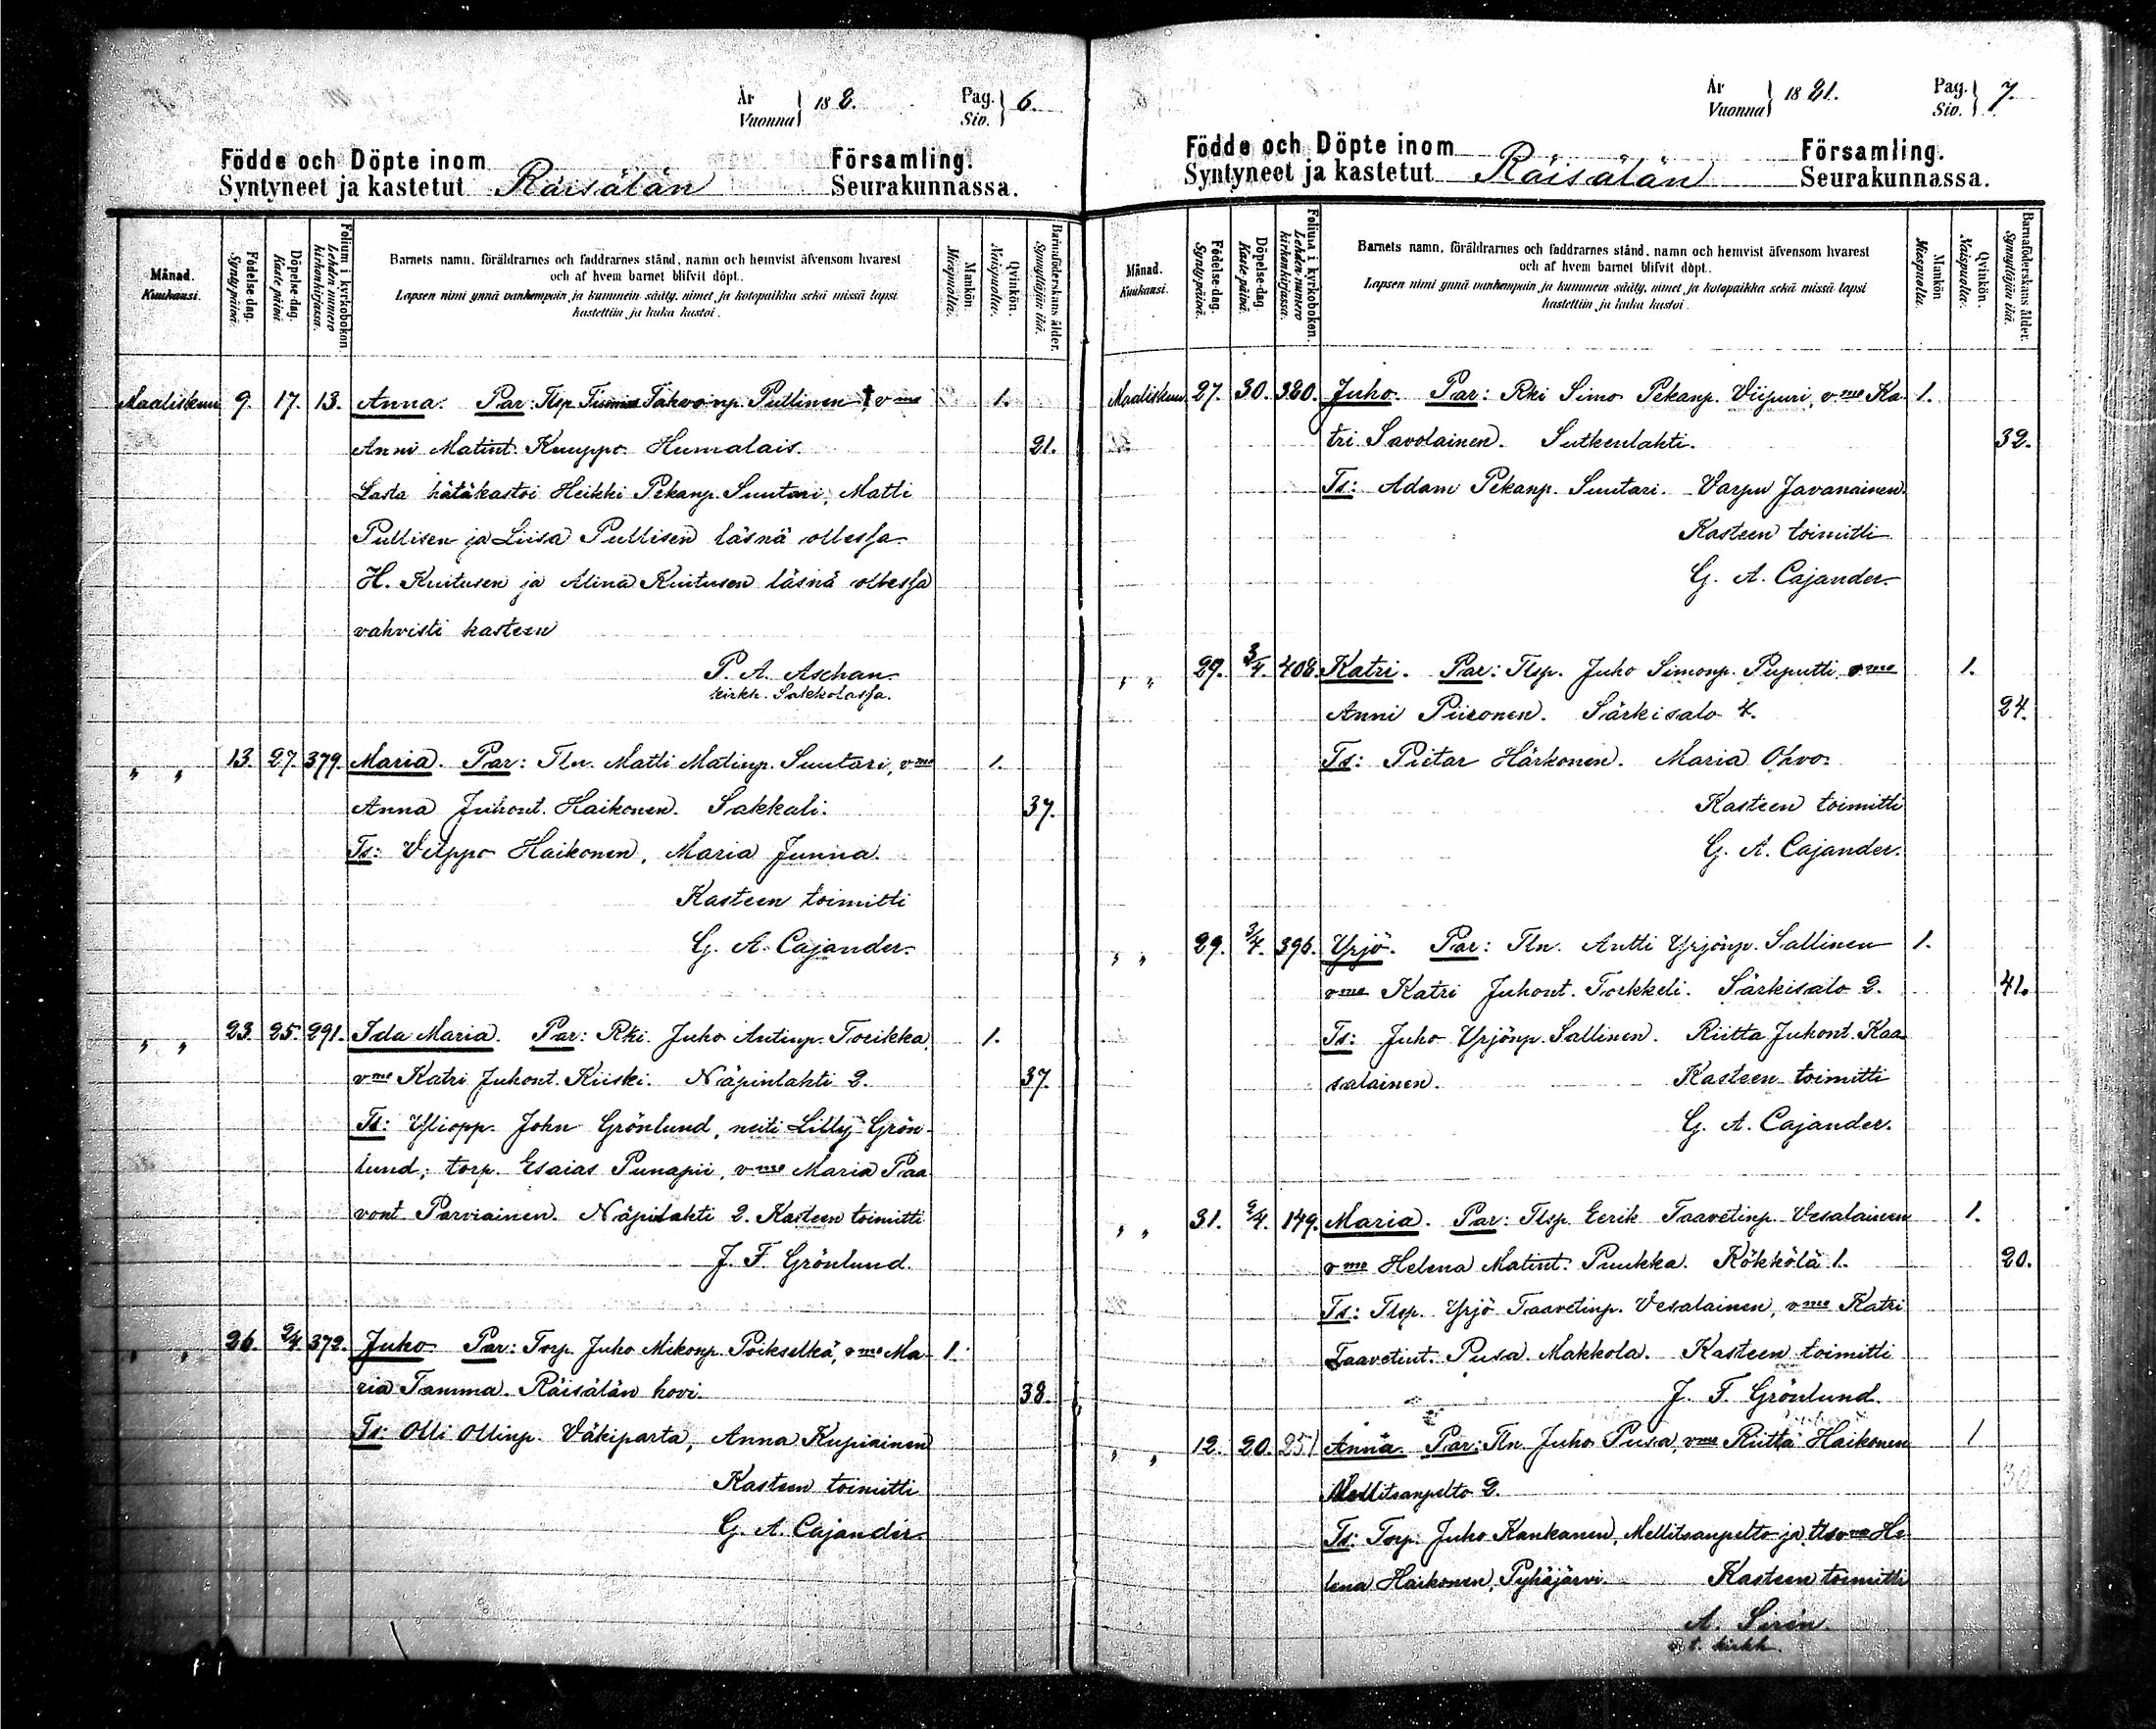 År
Vuonna } 18 8.
Pag.
Siv. } 6.
Födde och Döpte inom
Syntyneet ja kastetut Räisälän
Församling.
Seurakunnassa.
Månad.
Kuukausi.
Födelse-dag.
Syntypäivä.
Döpelse-dag.
Kaste päivä.
Folium i kyrkoboken.
Lehden numero kirkonkirjassa.
Barnets namn, föräldrarnes och faddrarnes stånd, namn och hemvist äfvensom hvarest
och af hvem barnet blifvit döpt.
Lapsen nimi ynnä vanhempain ja kummein sääty, nimet ja kotopaikka sekä missä lapsi
kastettiin ja kuka kastoi.
Mankön.
Miespuolta.
Qvinkön.
Naispuolta.
Barnaföderskans ålder.
Synnyttäjän ikä.
Maaliskuu 9. 17. 13. Anna. Par: Tlsp. Tahvonp. Pullinen † vmo 1.
Anni Matint. Knuppo. Humalais. 21.
Lasta hätäkastoi Heikki Pekanp. Suutari, Matti
Pullisen ja Liisa Pullisen läsnä ollessa
H. Kuitusen ja Alina Kuitusen läsnä ollessa
vahvisti kasteen
P. A. Aschan
kirkh. Sakkolassa.
" " 13. 27. 379. Maria. Par: Tln. Matti Matinp. Suutari, vmo 1.
Anna Juhont. Haikonen. Sakkali. 37.
Ts: Vilppo Haikonen, Maria Junna.
Kasteen toimitti
G. A. Cajander.
" " 23. 25. 291. Ida Maria. Par: Rki. Juho Antinp. Torikka, 1.
vmo Katri Juhont. Kiiski. Näpinlahti 2. 37.
Ts: Yliopp. John Grönlund, neiti Lilly Grön-
lund, torp. Esaias Punapii, vmo Maria Paa-
vont. Parviainen. Näpinlahti 2. Kasteen toimitti
J. F. Grönlund.
" " 26. 2/4. 372. Juho. Par: Torp. Juho Mikonp. Poikselkä, vmo Ma- 1.
ria Tamma. Räisälän hovi. 38.
Ts: Olli Ollinp. Väkiparta, Anna Kupiainen
Kasteen toimitti
G. A. Cajander.
År
Vuonna } 1881.
Pag.
Siv. } 7.
Födde och Döpte inom
Syntyneet ja kastetut Räisälän
Församling.
Seurakunnassa.
Månad.
Kuukausi.
Födelse-dag.
Syntypäivä.
Döpelse-dag.
Kaste päivä.
Folium i kyrkoboken.
Lehden numero kirkonkirjassa.
Barnets namn, föräldrarnes och faddrarnes stånd, namn och hemvist äfvensom hvarest
och af hvem barnet blifvit döpt.
Lapsen nimi ynnä vanhempain ja kummein sääty, nimet ja kotopaikka sekä missä lapsi
kastettiin ja kuka kastoi.
Mankön
Miespuolta.
Qvinkön.
Naispuolta.
Barnaföderskans ålder.
Synnyttäjän ikä.
Maaliskuu 27. 30. 380. Juho. Par: Rki Simo Pekanp. Viipuri, vmo Ka- 1.
tri Savolainen. Sutkenlahti. 32.
Ts: Adam Pekanp. Suutari. Varpu Javanainen.
Kasteen toimitti
G. A. Cajander.
" " 29. 3/4. 408. Katri. Par: Tlsp. Juho Simonp. Puputti, vmo 1.
Anni Piironen. Särkisalo 4. 24.
Ts: Pietar Härkonen. Maria Ohvo.
Kasteen toimitti
G. A. Cajander.
" " 29. 3/4. 396. Yrjö. Par: Tln. Antti Yrjönp. Sallinen 1.
vmo Katri Juhont. Torkkeli. Särkisalo 2. 41.
Ts: Juho Yrjönp. Sallinen. Riitta Juhont. Kaa-
salainen. Kasteen toimitti
G. A. Cajander.
" " 31. 9/4. 149. Maria. Par: Tlsp. Eerik Taavetinp. Vesalainen 1.
vmo Helena Matint. Puukka. Kökkölä 1. 20.
Ts: Tlsp. Yrjö Taavetinp. Vesalainen, vmo Katri
Taavetint. Pusa. Makkola. Kasteen toimitti
J. F. Grönlund.
" " 12. 20. 251 Anna. Par: Tln. Juho Pusa, vmo Riitta Haikonen 1
Mellitsanpelto 2. 30
Ts: Torp. Juho Kankanen, Mellitsanpelto ja tlsvmo He-
lena Haikonen, Pyhäjärvi. Kasteen toimitti
A. Sirén.
v. t. kirkh.